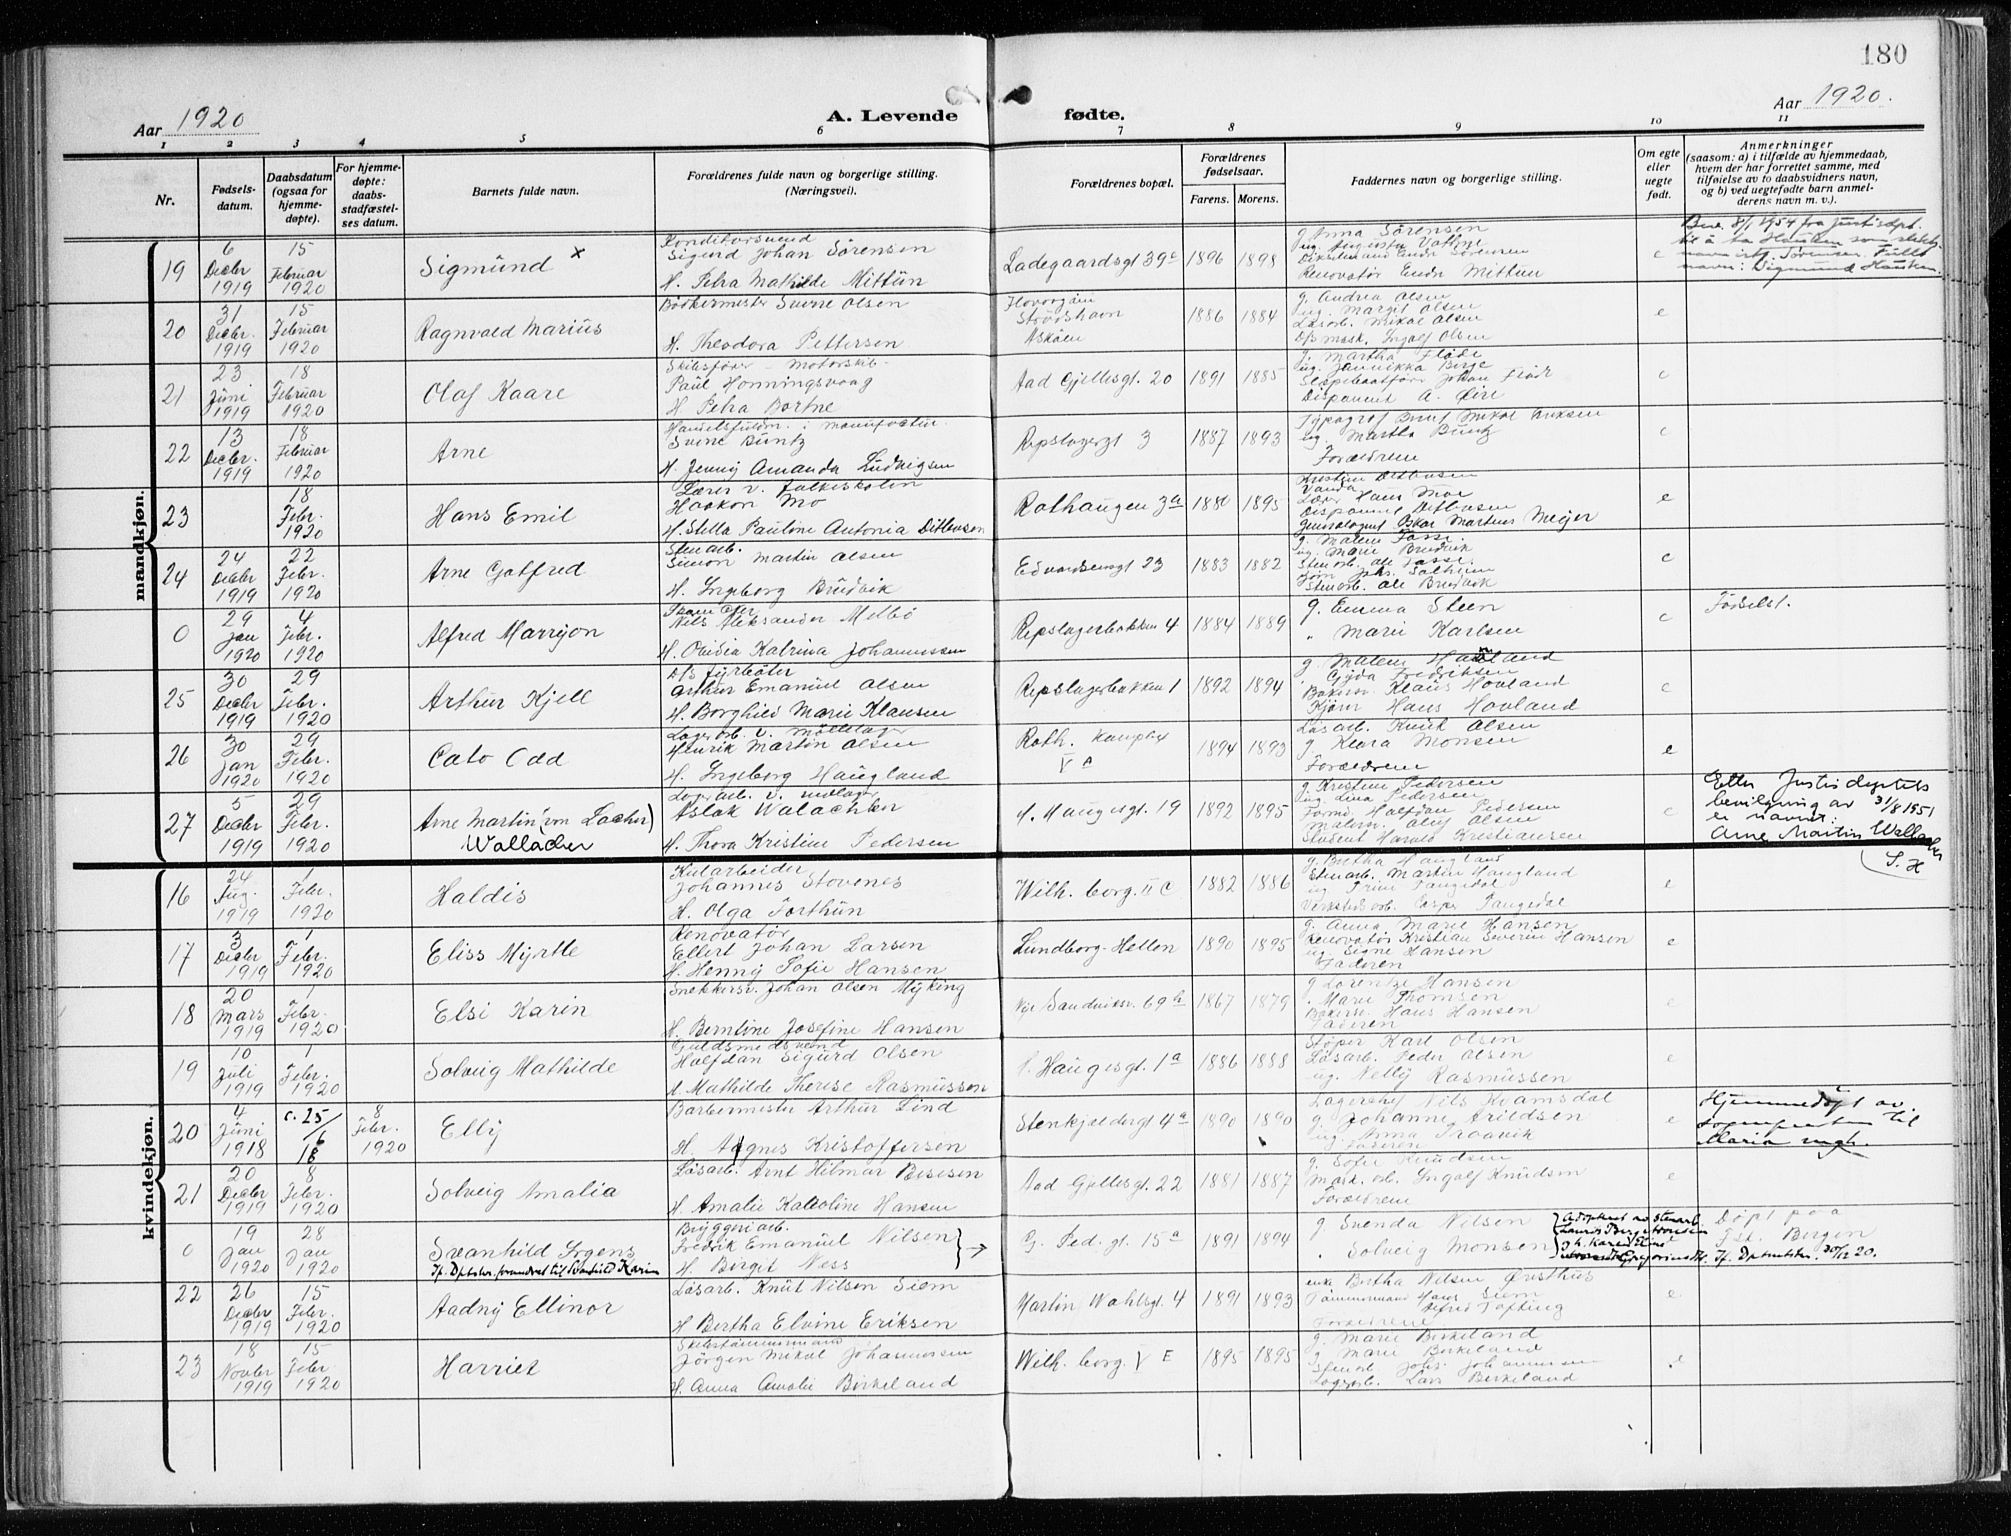 180
Aar 1920
A. Levende fødte.
Aar 1920.
1 2 3 4 5 6 7 8 9 10 11
Nr.
Fødsels-
datum.
Daabsdatum
(ogsaa for
hjemme-
døpte).
For hjemme-
døpte:
daabs-
stadfæstel-
ses datum.
Barnets fulde navn.
Forældrenes fulde navn og borgerlige stilling.
(Næringsvei).
Forældrenes bopæl.
Forældrenes
fødselsaar.
Farens. Morens.
Faddernes navn og borgerlige stilling.
Om egte
eller
uegte
født.
Anmerkninger
(saasom: a) i tilfælde av hjemmedaab,
hvem der har forrettet samme, med
tilføielse av to daabsvidners navn,
og b) ved uegtefødte barn anmel-
derens navn m. v.).
mandkjøn.
19
6 Decbr 1919
15 Februar 1920
Sigmund x
Konditorsvend
Sigurd Johan Sørensen
H. Petra Mathilde Mittün
Ladegaardsgt 39c
1896 1898
g. Anna Sørensen
Renovatør Endr Mittun
e
navn: Sigmund Hauken
20
31 Decbr. 1919
15 Februar 1920
Ragnvald Marius
Bødkermester Sverre Olsen
H. Theodora Pettersen
Strüdshavn
Askøen
1886 1884
g. Andrea Olsen
ug. Margit Olsen
Løsarb. Mikal Olsen
D/s mask. Ingolf Olsen
e
21
23 Juni 1919
18 Februar 1920
Olaf Kaare
Skibsfører - Motorskib.
Paul Honningsvaag
H Petra Bortne
Aad Gjellesgt. 20
1891 1885
g. Martha Fløde
ug. Jannikka Berge
Slæpebaatfører Johan Fløde
Disponent A. Øire
e
22
13 Decbr. 1919
18 Februar 1920
Arne
Handelsfuldm. i manufactur.
Sverre Buntz
H. Jenny Amanda Ludvigsen
Repslagergt 3
1887 1893
ug. Martha Buntz
Forældrene
e
23
18 Febr. 1920
Hans Emil
Lærer v. folkeskolen
Haakon Mo
H. Stella Pauline Antonia Ditlevsen
Rothaugen 3a
1880 1895
Kristine Ditlevsen
Lærer Hans Moe
Disponent Ditlevsen
Generalagent Oskar Martens Meijer
e
24
24 Decbr 1919
22 Febr. 1920
Arne Gotfred
Stenarb.
Simon Martin Olsen
H. Ingeborg Brudvik
Edvardsensgt 23
1883 1882
g. Malene Fosse.
ug. Marie Brudvik
Stenarb. Ole Fosse.
Stenarb. Ole Brudvik
e
0
29 Jan 1920
4 Febr. 1920
Alfred Marrÿon
Nils Aleksander Melbø
H. Ovidia Katrina Johannessen
Repslagerbakken 4
1884 1889
g. Emma Steen
" Marie Karlsen
e
Fødselst.
25
30 Decbr 1919
29 Febr. 1920
Arthur Kjell
D/S fyrbøter
Arthur Emanuel Olsen
H. Borghild Marie Klausen
Repslagerbakken 1
1892 1894
g. Malene Hovland
Gyda Fredriksen
Bakersv. Klaus Hovland
Hans Hovland
e
26
30 Jan 1920
29 Febr. 1920
Cato Odd
Henrik Martin Olsen
H. Ingeborg Haugland
Roth. kompl 4
V A
1894 1893
Løsarb. Knut Olsen
g. Klara Monsen
Forældrene
e
27
5 Decbr 1919
29 Febr. 1920
Arne Martin (von Locher)
Wallacher
Aslak Walacher
H. Thora Kristine Pedersen
H. Haugesgt. 19
1892 1895
g. Kristine Pedersen
ug. Lina Pedersen
Formd Halfdan Pedersen
Malersv. Oluf Olsen
Student Harald Kristiansen
e
Etter Justisdeptets
bevilgning av 31/8 1951
er navnet:
Arne Martin Wallacher
S. H
kvindekjøn.
16
24 Aug. 1919
1 Febr. 1920
Haldis
Kularbeider
Johannes Stovenes
H. Olga Forthun
Wilh. borg. II C
1882 1886
g. Bertha Haugland
Stenarb. Martin Haugland
ug. Trine Tangedal
Verkstedsarb. Casper Tangedal
e
17
3 Decbr 1919
1 Febr. 1920
Eliss Myrtle
Renovatør
Ellert Johan Larsen
H. Henny Sofie Hansen
Lundborg-Hellen
1890 1895
g. Anna Marie Hansen
Renovatør Kristian Severin Hansen
ug. Signe Hansen
Faderen
e
18
20 Mars 1919
1 Febr. 1920
Elsi Karin
Snekkersv. Johan Olsen Myking
H. Berntine Josefine Hansen
Nye Sandviksv. 69h
1867 1879
g Lorentze Hansen
. Marie Thomsen
Bakersv. Hans Hansen
Faderen
e
19
10 Juli 1919
1 Febr. 1920
Solveig Mathilde
Guldsmedsvend
Halfdan Sigurd Olsen
H. Mathilde Therese Rasmussen
H. Haugesgt. 1a
1886 1888
Støper Karl Olsen
Løsarb. Peder Olsen
ug. Nelly Rasmussen
e
20
4 Juni 1918
c. 25/6 18
8 Febr. 1920
Elly
Barbermester Arthur Lind
H Agnes Kristoffersen
Stenkjeldergt 4a
1890 1890
Lagerchef Nils Kvamsdal
g. Johanne Arildsen
Faderen
e
Hjemmedøpt av
sogneprest til
Maria mgh.
21
20 Decbr 1919
8 Febr. 1920
Solveig Amalia
Løsarb. Arnt Hilmar Besesen
H. Amalie Karoline Hansen
Aad Gjellesgt. 22
1881 1887
g. Sofie Knudsen
Mask. arb. Ingolf Knudsen
Forældrene
e
0
19 Jan 1920
28 Jan 1920
Svanhild Irgens
Bryggeriarb.
Fredrik Emanuel Nilsen
H. Birgit Ness
G. Ped. gt. 15a
1891 1894
g Svenda Nilsen
. Solveig Monsen
Adopteret av stenarb.
Døpt paa
Fst. Bergen
22
26 Decbr 1919
15 Febr. 1920
Aadny Ellinor
Løsarb. Knut Nilsen Siem
H Bertha Elvine Eriksen
Martin Wahlsgt. 4
1891 1893
enke Bertha Nilsen Øvsthus
Tømmermand Hans Siem
Alfred Tofting
Forældrene
e
23
18 Novbr 1919
15 Febr. 1920
Harriet
Skibstømmermand
Jörgen Mikal Johannessen
H. Anna Amalie Birkeland
Wilh. borg. V E
1895 1895
g. Marie Birkeland
g. Marie Birkeland
Stenarb Johs. Johannessen
Lagerarb. Lars Birkeland
e